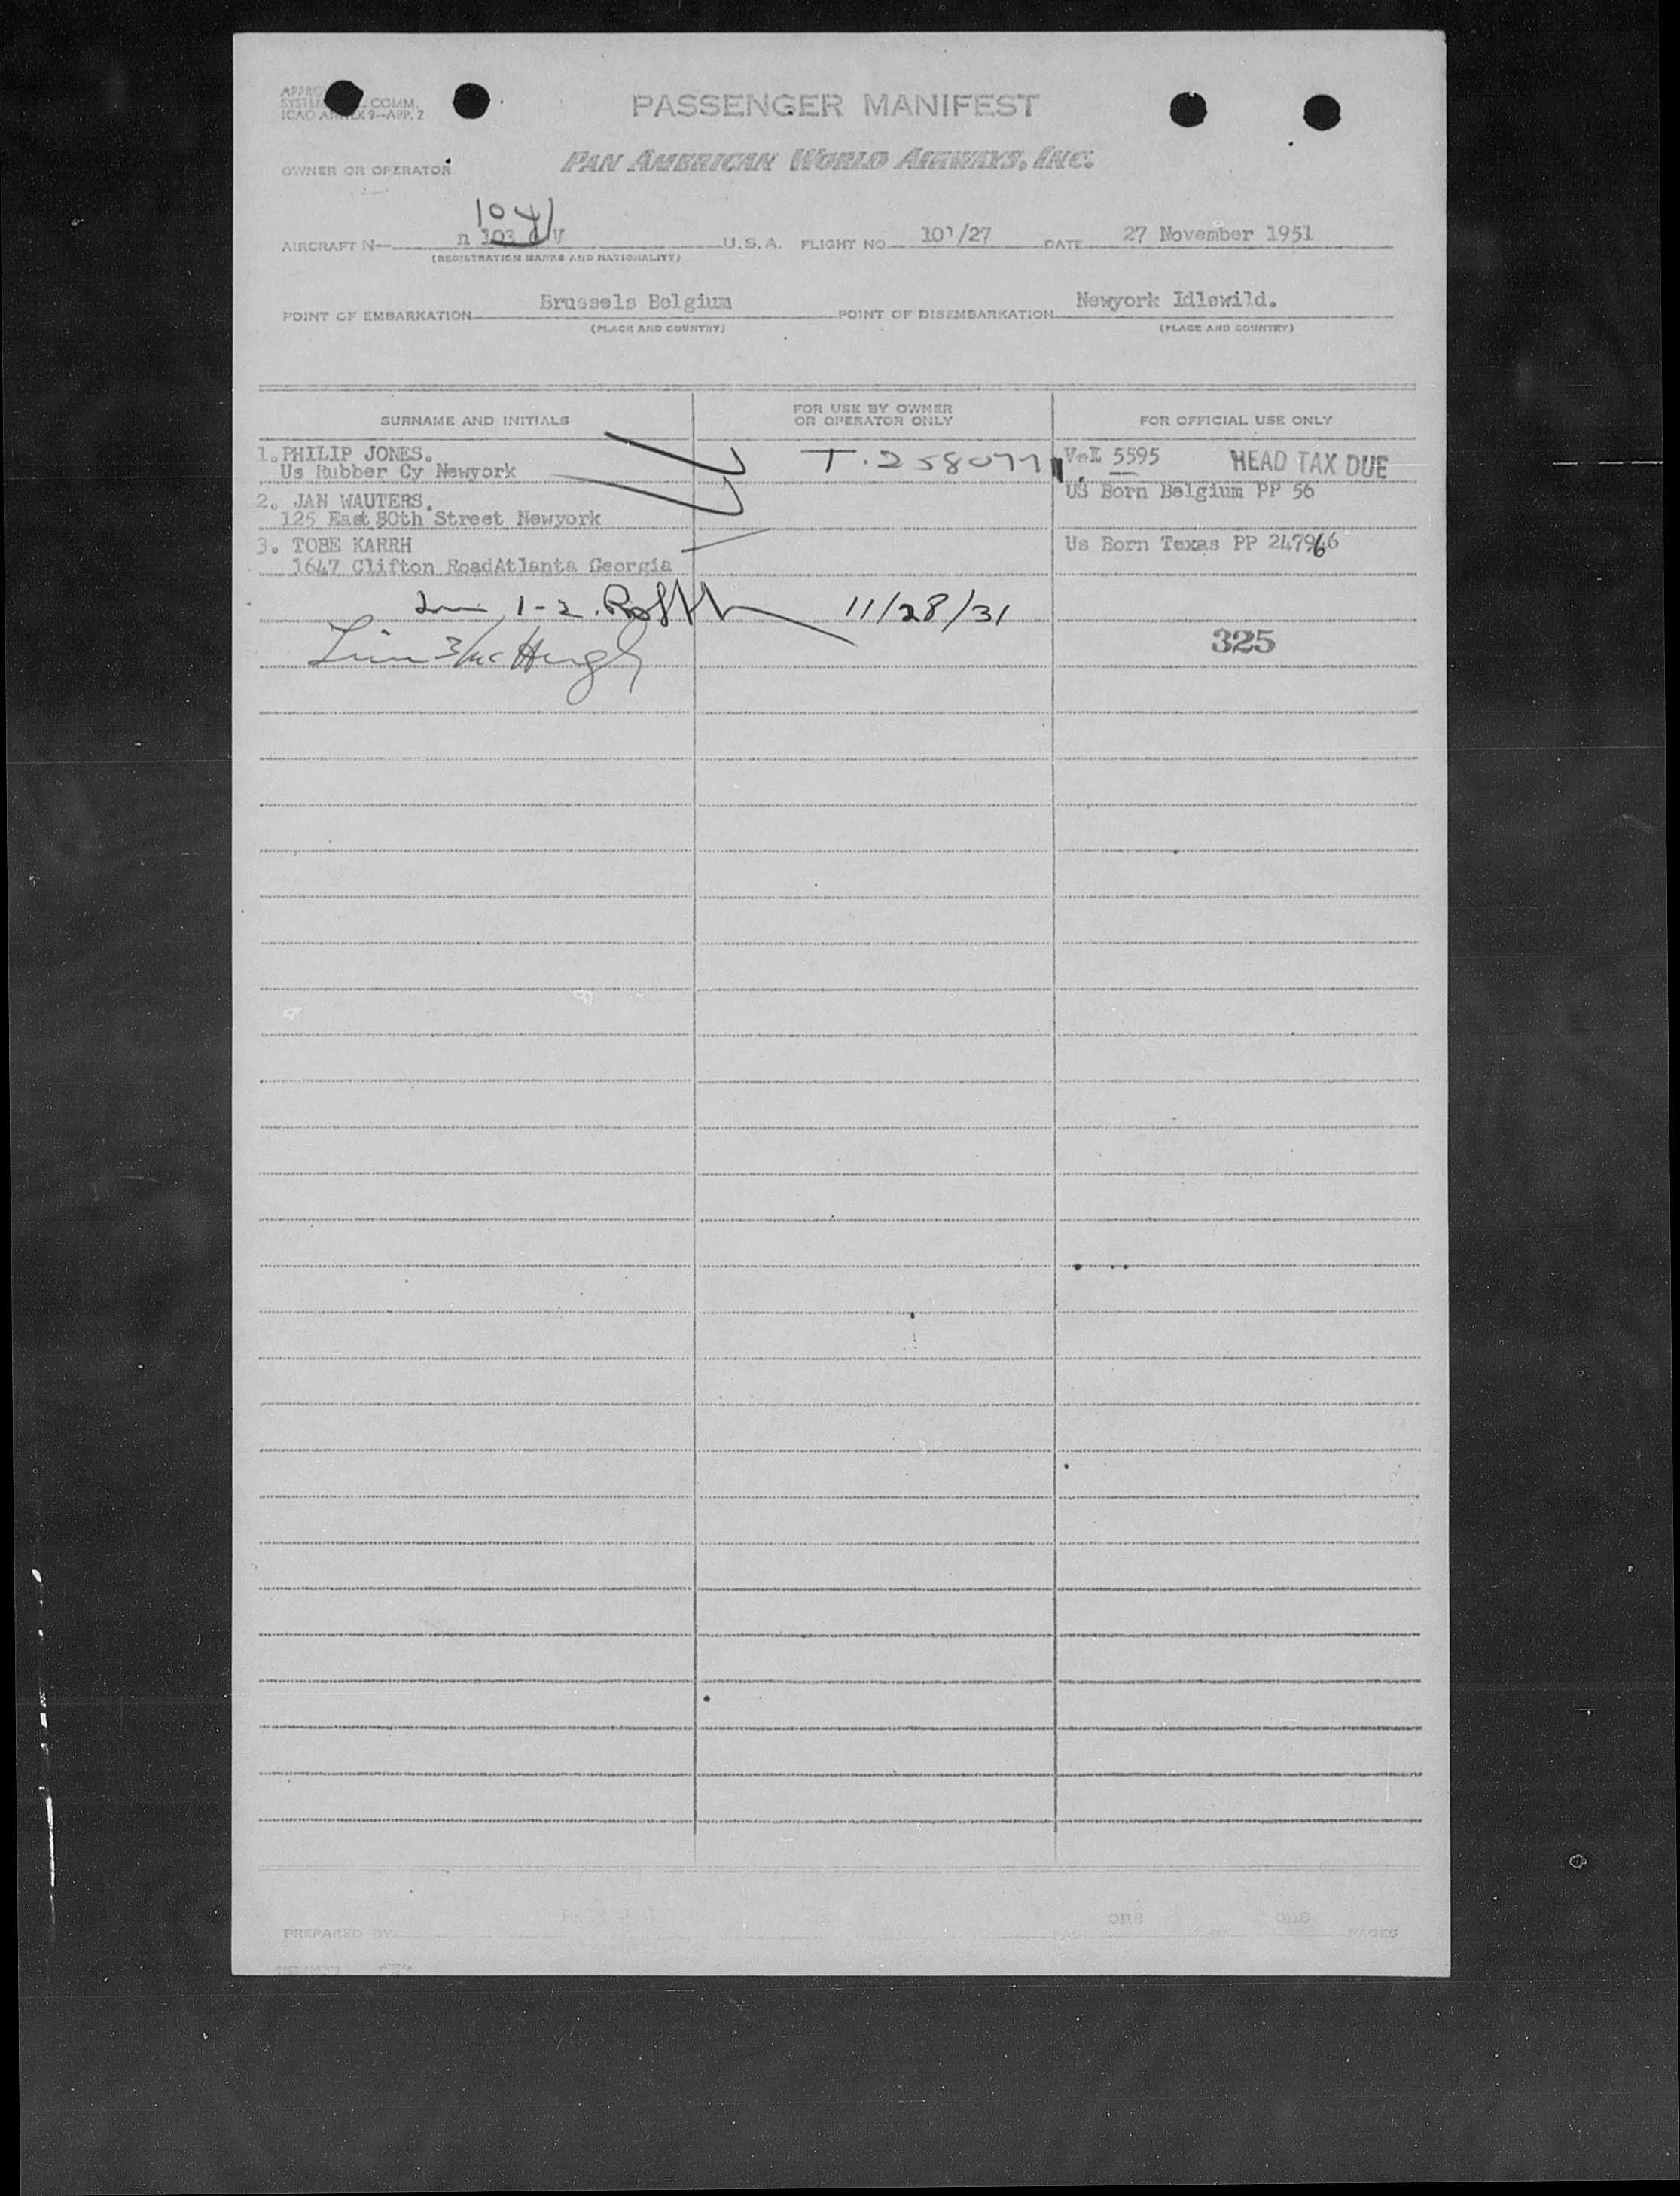 PASSENGER MANIFEST
COMM.
ICAO ANNEX 9—APP. 2
OWNER OR OPERATOR PAN AMERICAN WORLD AIRWAYS, INC.
104
AIRCRAFT N— n 103 V U.S.A. FLIGHT NO. 101/27 DATE 27 November 1951
(REGISTRATION MARKS AND NATIONALITY)
POINT OF EMBARKATION Brussels Belgium POINT OF DISEMBARKATION Newyork Idlewild.
(PLACE AND COUNTRY) (PLACE AND COUNTRY)
SURNAME AND INITIALS FOR USE BY OWNER OR OPERATOR ONLY FOR OFFICIAL USE ONLY
1. PHILIP JONES. T. 258077 5595 HEAD TAX DUE
Us Rubber Cy Newyork
2. JAN WAUTERS. US Born Belgium PP 56
125 East 80th Street Newyork
3. TOBE KARRH Us Born Texas PP 247966
1647 Clifton RoadAtlanta Georgia
1-2. 11/28/31
325
PREPARED BY PAGE one OF one PAGES